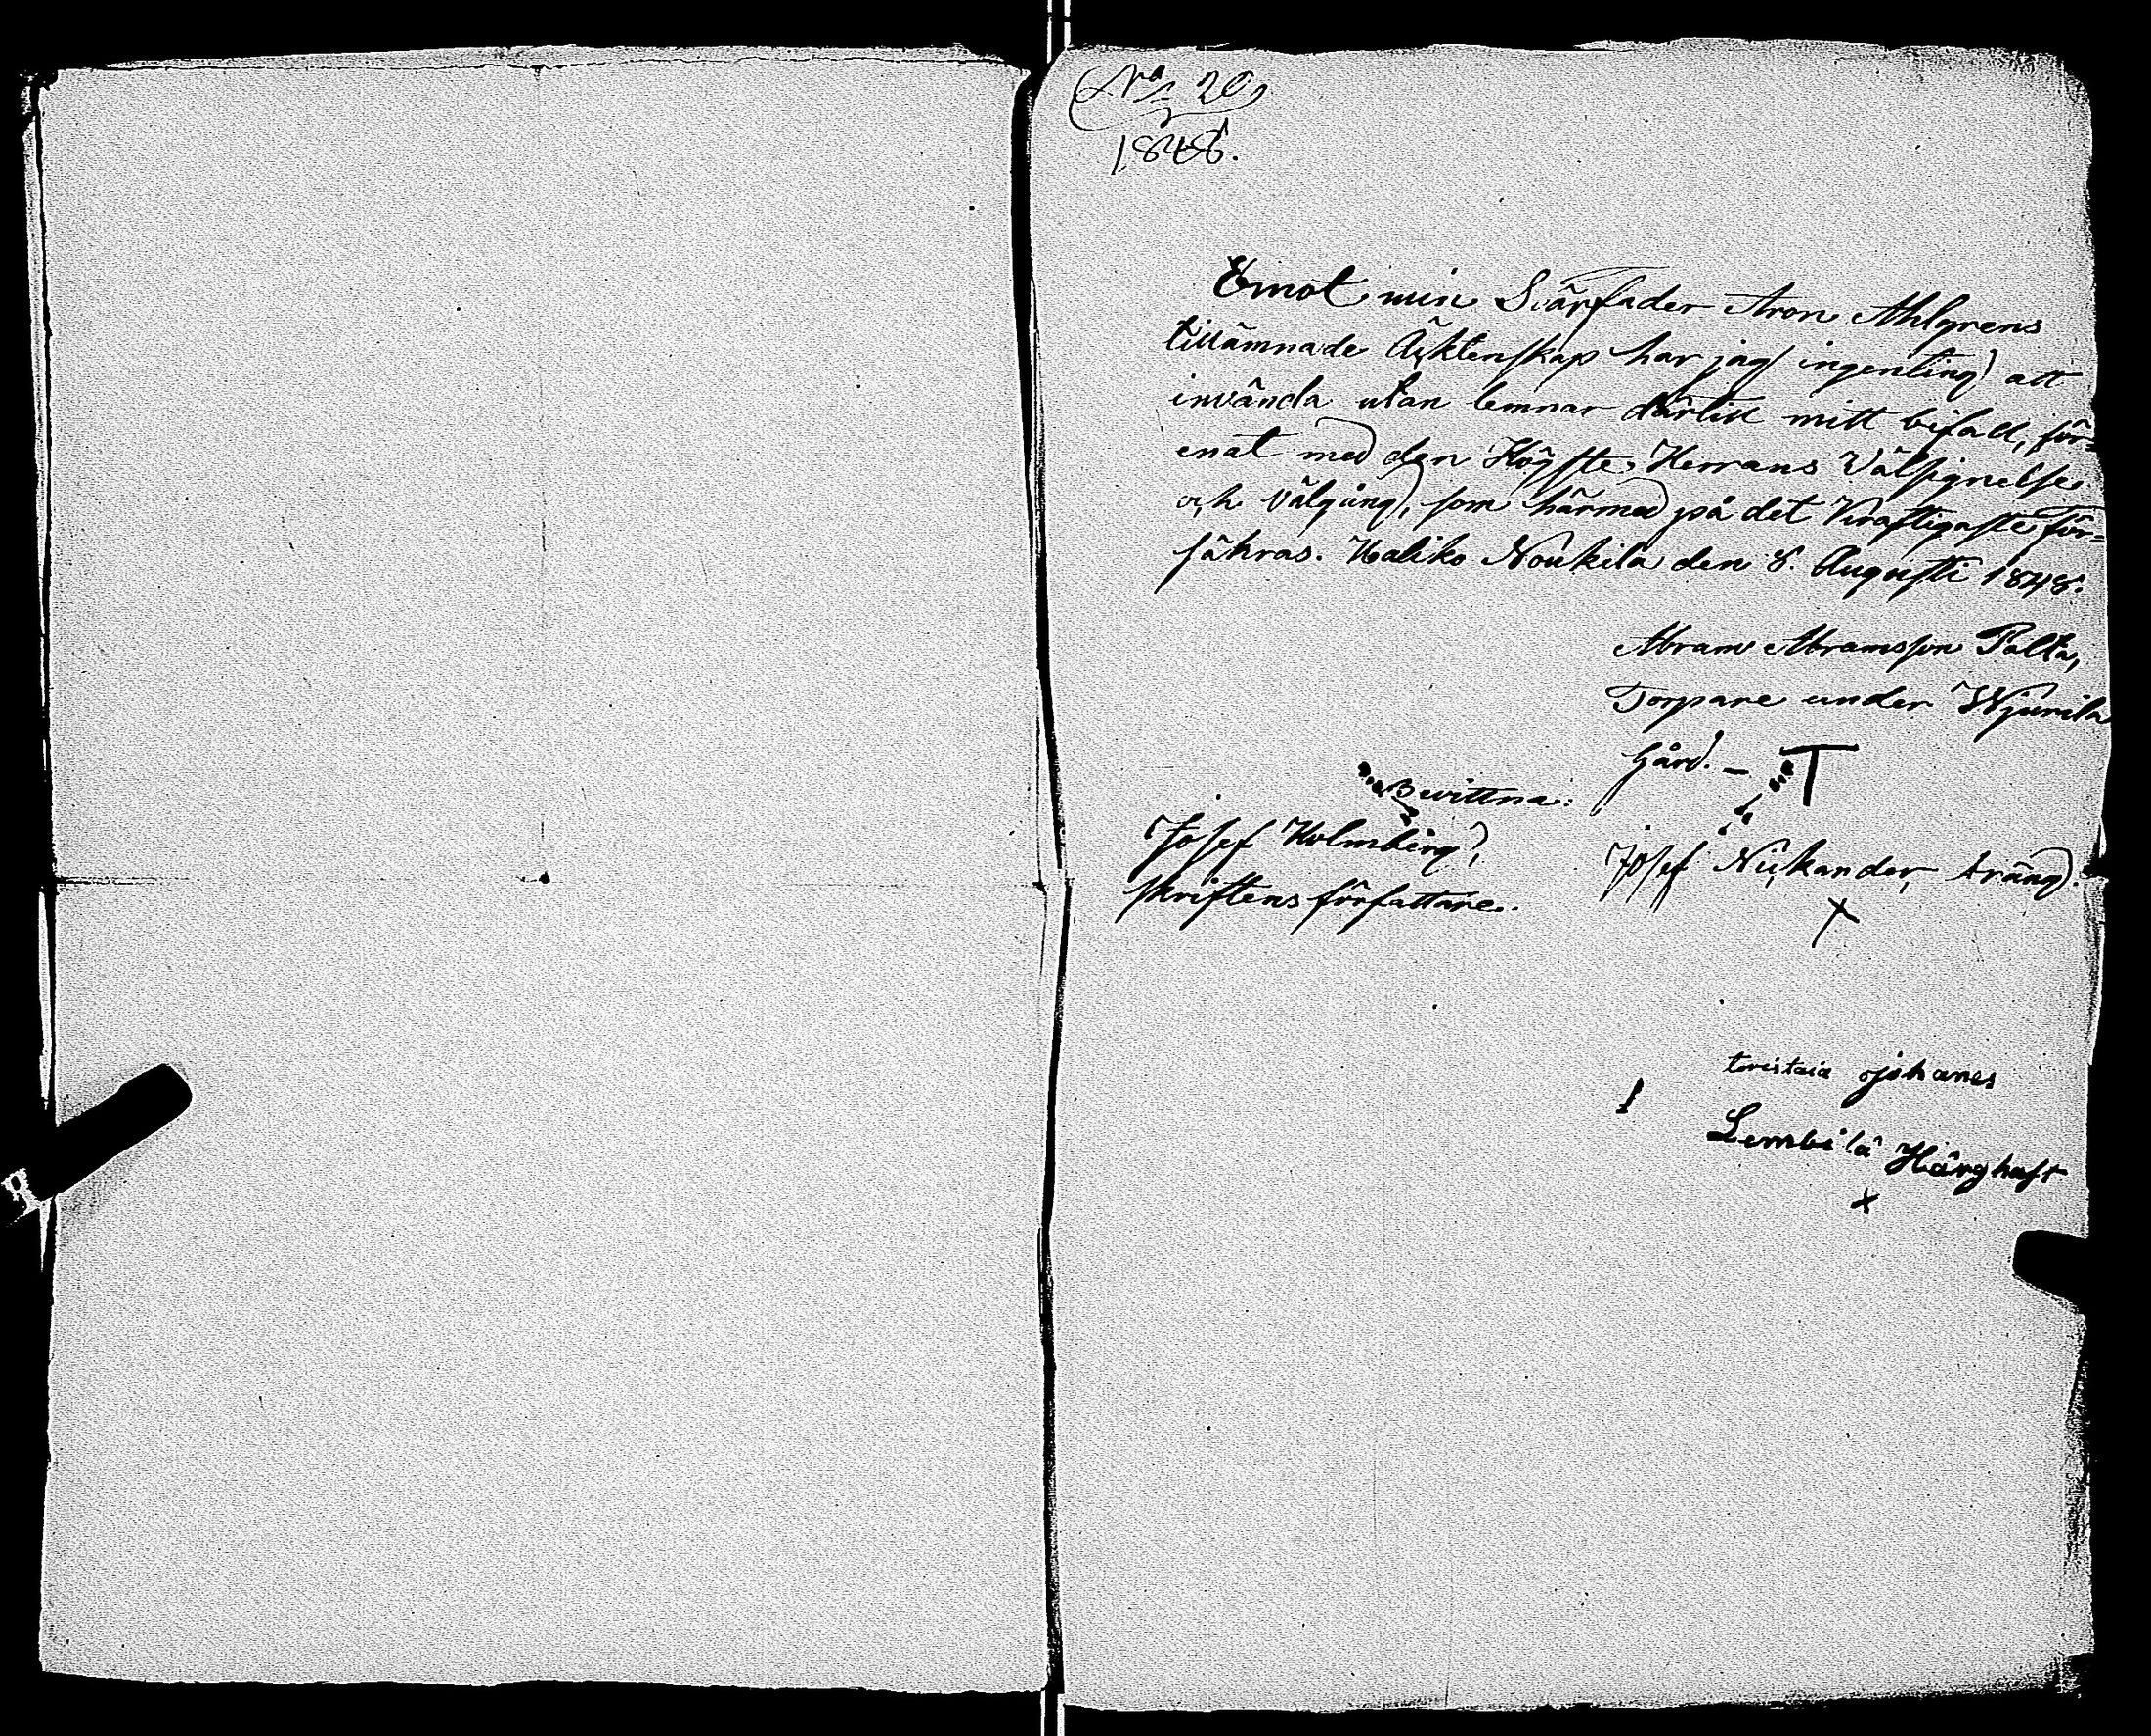 No 20,
1848.
Emot min Svärfader Aron Ahlgrens
tillämnade Äktenskap har jag ingenting att
invända utan lemnar därtill mitt bifall, för=
enat med den Högste Herrans Välsignelse
och välgång, som härmed på det kraftigaste för=
säkras. Haliko Noukila den 8. Augusti 1848.
Abram Abramsson Palta,
Torpare under Wjurila
Gård. – T
Bevittna:
Josef Holmberg,
skriftens författare.
Josef Nykander, dräng.
x
toristaia johanes
Lembilä Härghaft
x